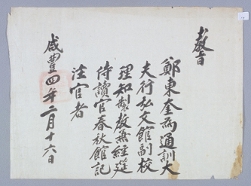 敎旨
鄭東奎爲通訓大
夫行弘文館副校
理知製敎兼經筵
侍讀官春秋館記
注官者
咸豊四年二月十六日